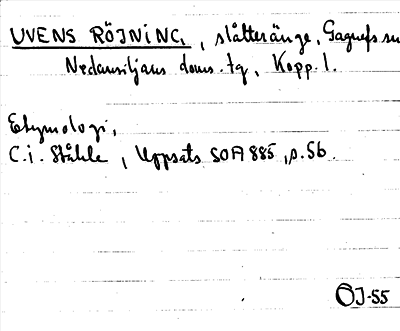 UVENS RÖJNING, slåtteränge, Gagnefs sn
Nedansiljans doms. tg, Kopp. l.
Etymologi,
C. i. Ståhle, Uppsats SOFI 885, s. 56.
ÖJ-55